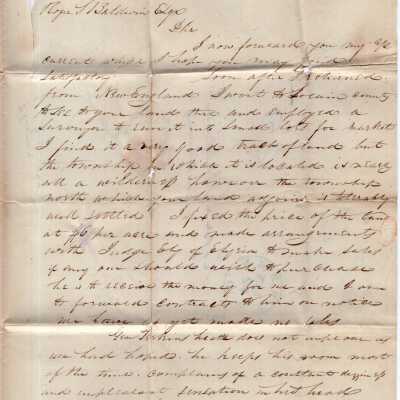 Rope S Baldwin Esqr
I now forward you my a/c
current which I hope you may find
Soon after I returned
from New England I went to Lorain County
to see to your land there and employed a
surveyor to run it into small lots for market
I find it a very good tract of land but
the township in which it is located is nearly
all a wilderness however the township
north which your land adjoins is
well settled I fixed the price of the land
at $6 per acre and made arrangements
with Judge Ely of Elyria to make sales
if any one should wish to purchase
he is to receive the money for me and I am
to forward contracts to him on notice
We have as yet made no sales
Gen Perkins health does not improve as
we had hoped he keeps his room most
of the time. Complains of a constant dizziness
and unpleasant sensation in his head